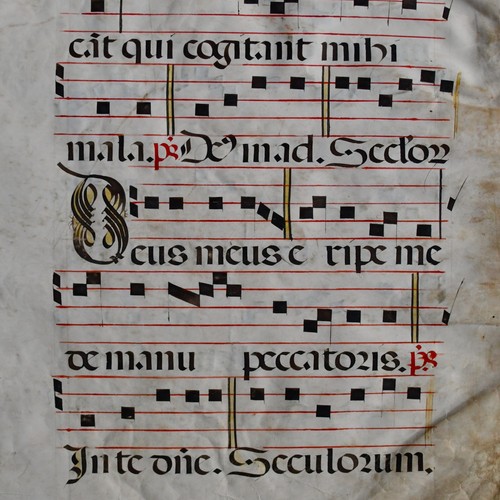 cāt qui cogitant mihi
mala. ps̄ Deꝰ in ad. Seclorꝝ
Deus meus eripe me
de manu peccatoris. ps̄
In te dn̄e. Seculorum.